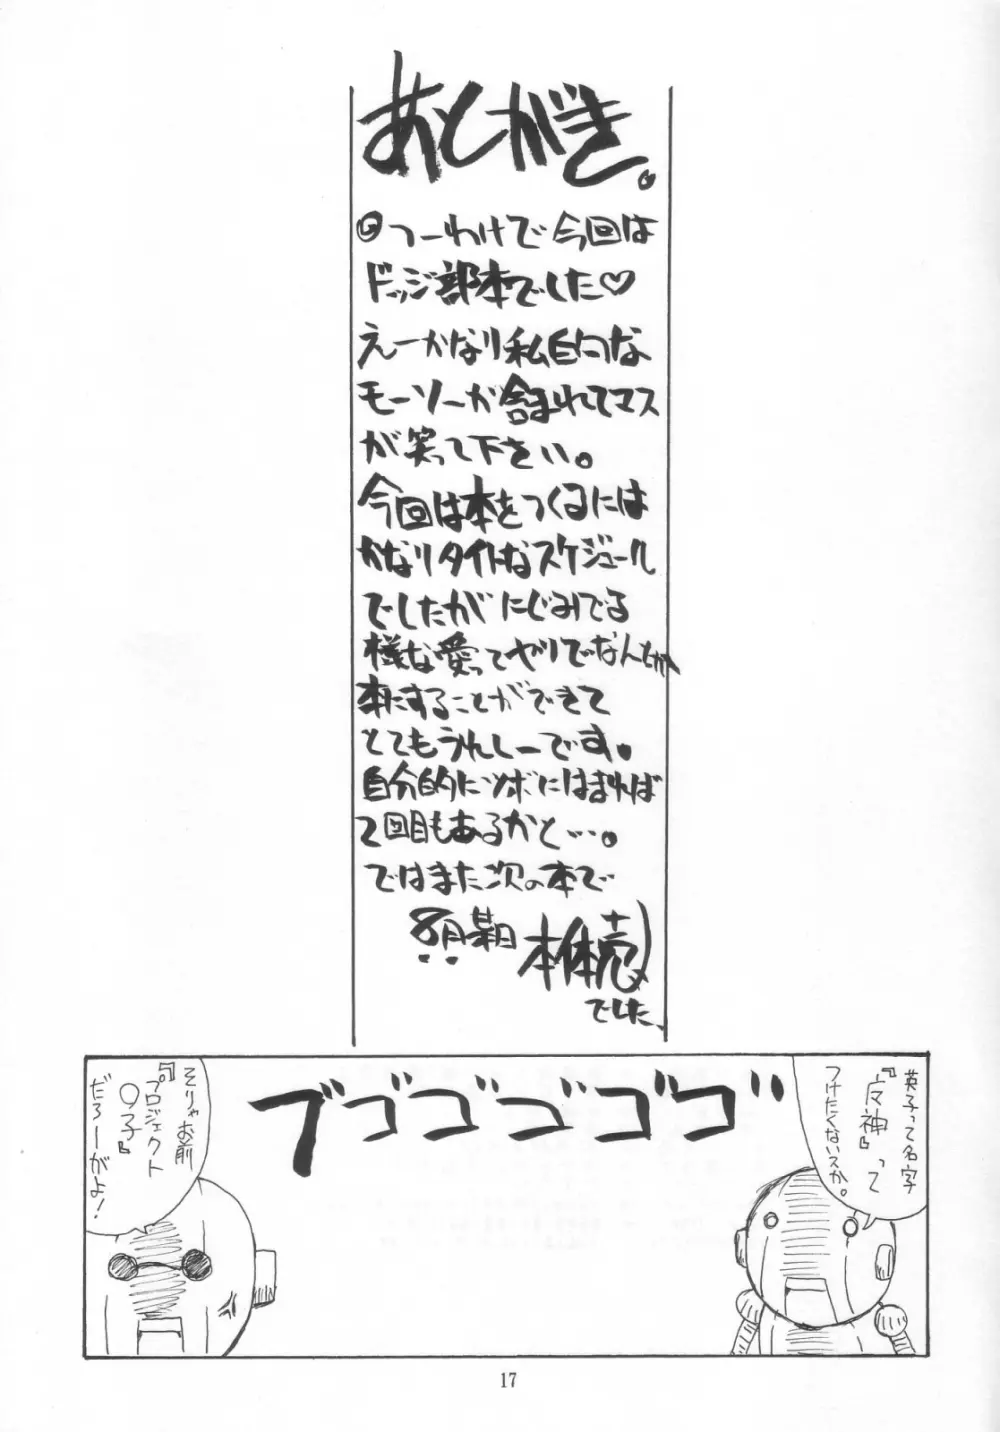 あとがき。
◎つーわけで今回は
ドッジ部本でした♡
えーかなり私的な
モーソーが含まれてマス
が笑って下さい。
今回は本をつくるには
かなりタイトなスケジュール
でしたがにじみでる
様な愛ってヤツでなんとか
本にすることができて
とてもうれしーです。
自分的にツボにはまれば
2回目もあるかと…。
ではまた次の本で
8月某日 本体売
でした、
英子って名字
『皮神』って
つけたくないスか。
ブゴゴゴゴゴ
そりゃお前
『プロジェクト
〇子』
だろーがよ!
17